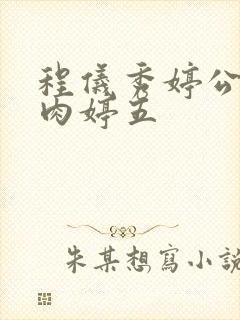 程儀秀婷公
肉婷五
朱某想寫小說